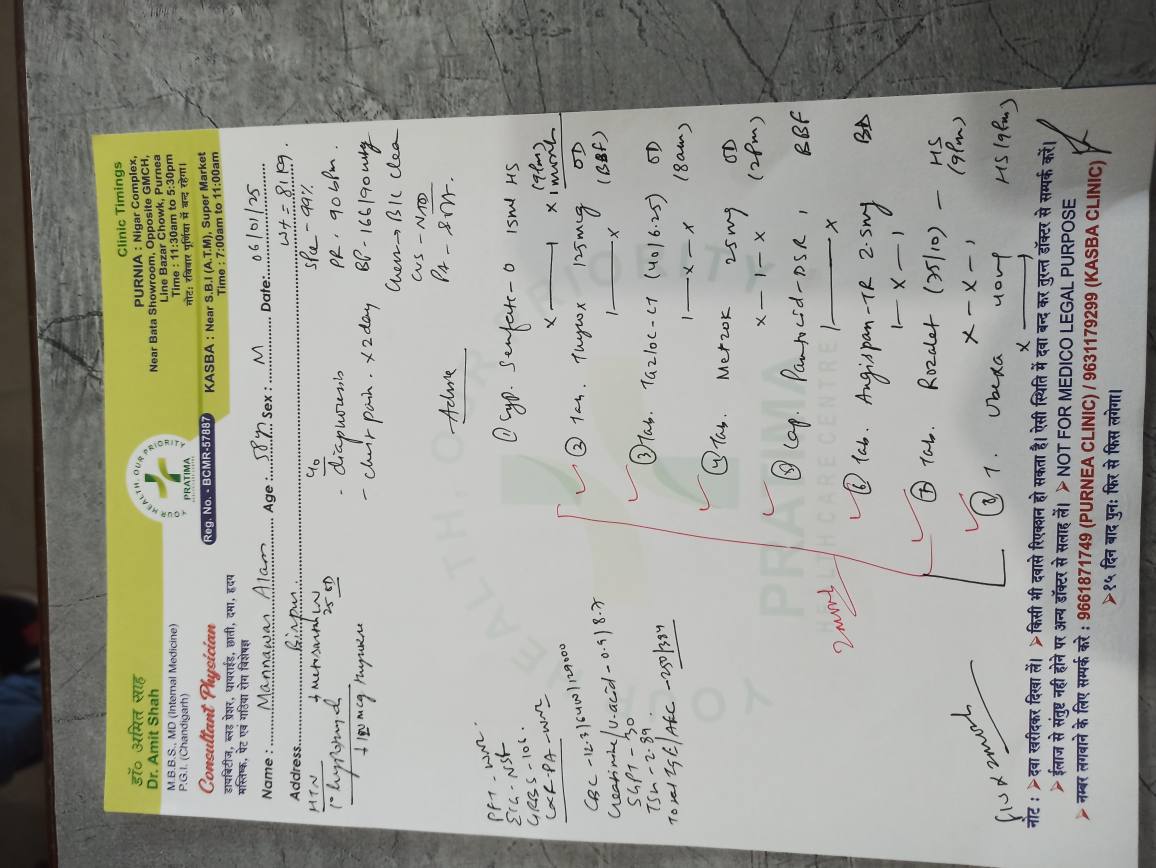 डॉ० अमित साह
Dr. Amit Shah
M.B.B.S., MD (Internal Medicine)
P.G.I. (Chandigarh)
Consultant Physician
डायबिटीज, ब्लड प्रेशर, थायराईड, छाती, दमा, हृदय
मस्तिष्क, पेट एवं गठिया रोग विशेषज्ञ
YOUR HEALTH, OUR PRIORITY
PRATIMA
Reg. No. - BCMR-57887
Clinic Timings
PURNIA : Nigar Complex,
Near Bata Showroom, Opposite GMCH,
Line Bazar Chowk, Purnea
Time : 11:30am to 5:30pm
नोट: रविवार पूर्णिया में बन्द रहेगा।
KASBA : Near S.B.I (A.T.M), Super Market
Time : 7:00am to 11:00am
Name : Mannawar Alam Age : 58yr Sex : M Date: 06/01/25
Address
HTN
1° hypothyroid
+ 100 mcg
25 OD
c/o
- diaphoresis
- chest pain. x 2day
wt = 81 kg.
SPO2 - 99%
PR. 90 bpm.
BP - 166/90 mmHg
Chest → B/L clear
CVS - NAD
PA - soft.
Advise
① Syp. 15ml HS
x — 1 (9pm) x 1 month
② Tab. Thyrox 125mcg OD
1 — x (BBF)
③ Tab. Tazloc-CT (40/6.25) OD
1 — x — x (8am)
④ Tab. Metzok 25mg OD
x — 1 — x (2pm)
⑤ Cap. Pantocid-DSR, BBF
1 — x
⑥ Tab. Angispan-TR 2.5mg BD
1 — x — 1
⑦ Tab. Rozalet (75/10) — HS
x - x - 1 (9pm)
⑧ T. 40mg HS (9pm)
x — 1
2 month
PFT - WNL
ECG - NSR
GRBS - 101.
CXR-PA - WNL
CBC - 12.3/6400/129000
Creatinine/U-acid - 0.9/8.7
SGPT - 30
TSH - 2.89
Total IgE/AEC - 250/384
F/U x 2 month
YOUR HEALTH, OUR PRIORITY
PRATIMA
HEALTHCARE CENTRE
नोट : ➤ दवा खरीदकर दिखा लें। ➤ किसी भी दवासे रिएक्शन हो सकता है। ऐसी स्थिति में दवा बन्द कर तुरन्त डॉक्टर से सम्पर्क करें।
➤ ईलाज से संतुष्ट नही होने पर अन्य डॉक्टर से सलाह लें। ➤ NOT FOR MEDICO LEGAL PURPOSE
➤ नम्बर लगवाने के लिए सम्पर्क करे : 9661871749 (PURNEA CLINIC) / 9631179299 (KASBA CLINIC)
➤ १५ दिन बाद पुन: फिर से फिस लगेगा।